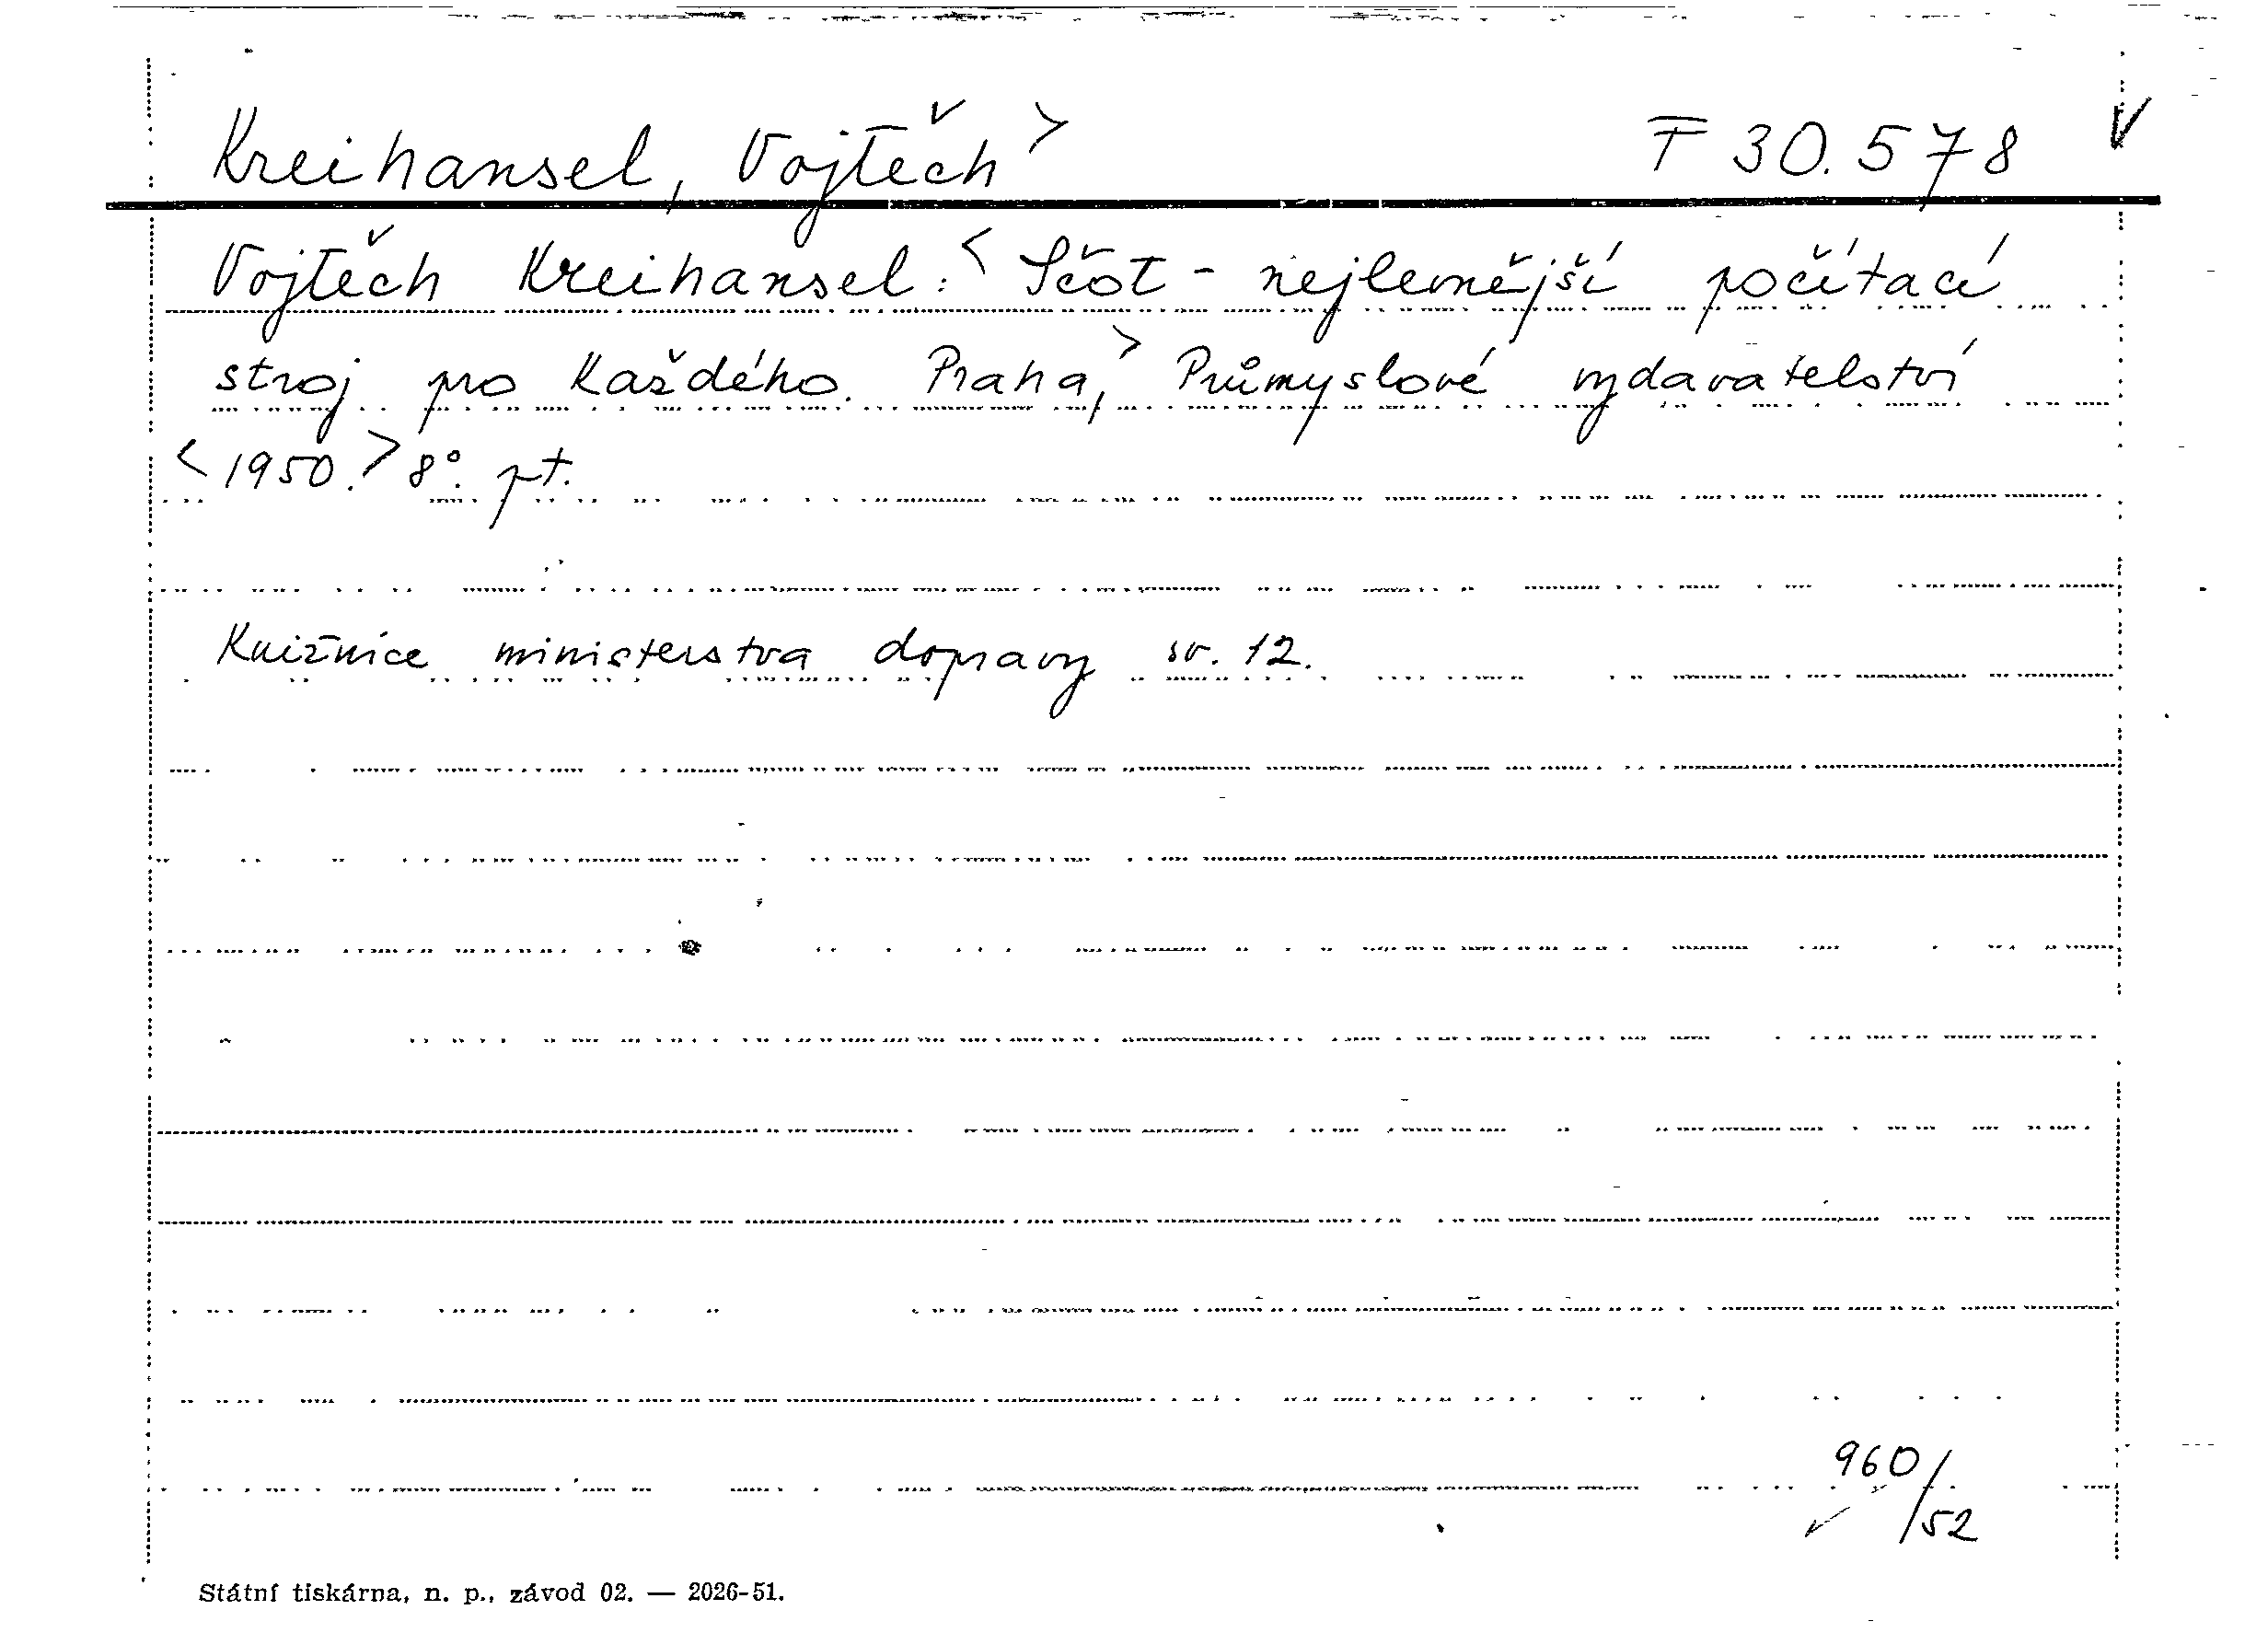 Kreihansel, Vojtěch > T 30.578 V
Vojtěch Kreihansel: < Sčot - nejlevnější počítací
stroj pro každého. Praha, > Průmyslové vydavatelství
< 1950. > 8°. pt.
Knižnice ministerstva dopravy sv. 12.
960/52
Státní tiskárna, n. p., závod 02. — 2026-51.